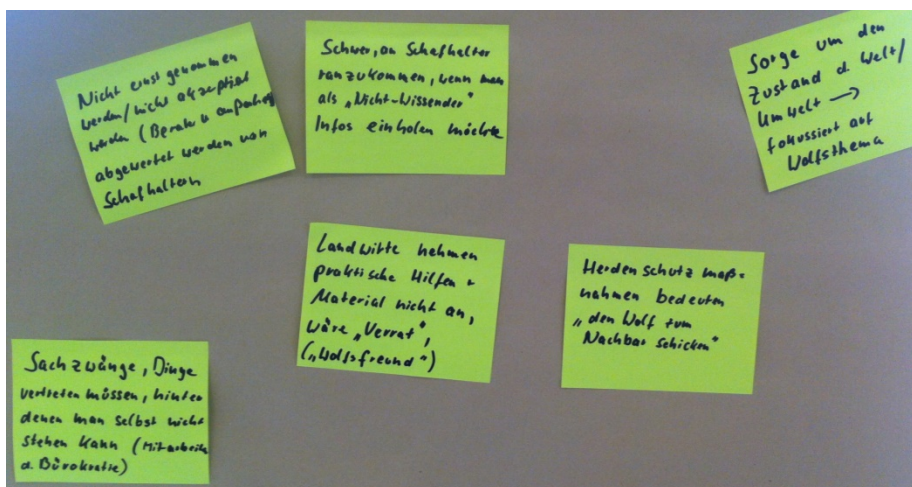 Nicht ernst genommen
werden/nicht akzeptiert
werden (Berater v. außerhalb)
abgewertet werden von
Schafhaltern
Schwer, an Schafhalter
ranzukommen, wenn man
als „Nicht-Wissender"
Infos einholen möchte
Sorge um den
Zustand d. Welt/
Umwelt →
fokussiert auf
Wolfsthema
Landwirte nehmen
praktische Hilfen +
Material nicht an,
wäre „Verrat",
(„Wolfsfreund")
Herdenschutzmaß=
nahmen bedeuten
„den Wolf zum
Nachbar schicken"
Sachzwänge, Dinge
vertreten müssen, hinter
denen man selbst nicht
stehen kann (Mitarbeiter
d. Bürokratie)